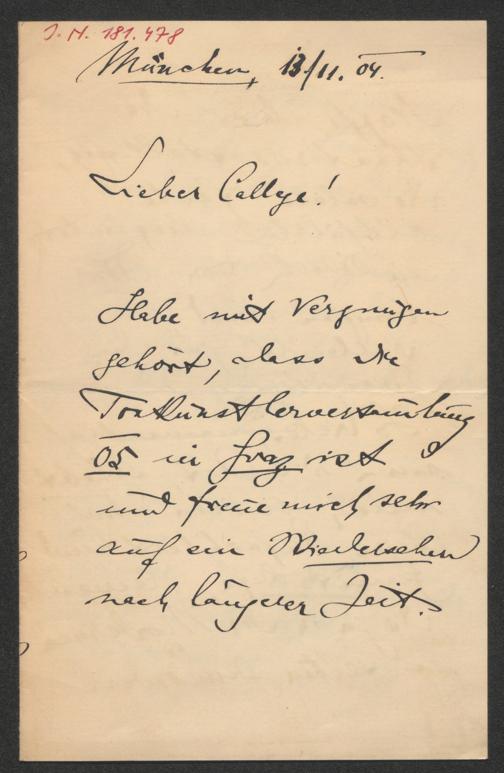 J. N. 181.478
München, 13/11. 04.
Lieber College!
Habe mit Vergnügen
gehört, dass die
Tonkünstlerversammlung
05 in Graz ist
und freue mich sehr
auf ein Wiedersehen
nach längerer Zeit.